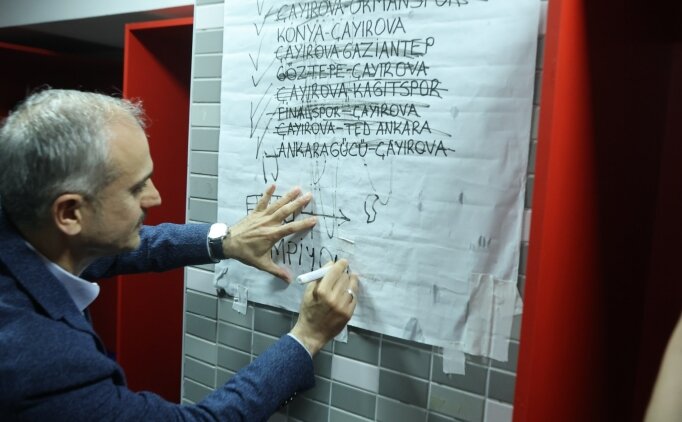 ÇAYIROVA-ORMANSPOR
KONYA-ÇAYIROVA
ÇAYIROVA GAZİANTEP
GÖZTEPE-ÇAYIROVA
ÇAYIROVA-KAĞITSPOR
FİNALSPOR-ÇAYIROVA
ÇAYIROVA-TED ANKARA
ANKARAGÜCÜ-ÇAYIROVA
MPİYO